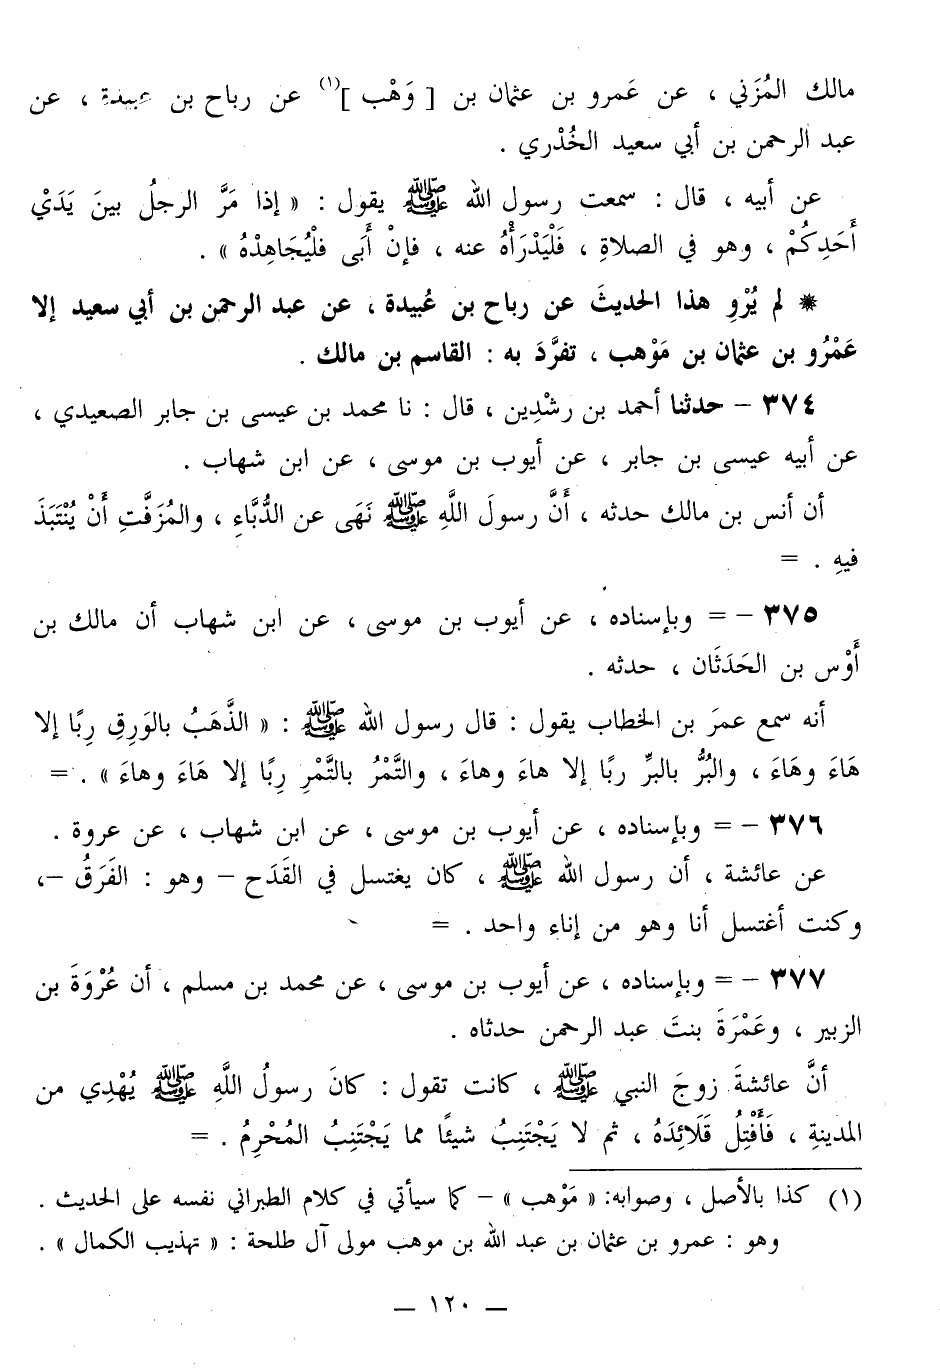 مالك المُزَني ، عن عَمرو بن عثمان بن [ وَهْب ](١) عن رباح بن عبيدة ، عن
عبد الرحمن بن أبي سعيد الخُدْري .
عن أبيه ، قال : سمعت رسول الله ﷺ يقول : « إذا مَرَّ الرجلُ بينَ يَدَيْ
أَحَدِكُمْ ، وهو في الصلاةِ ، فَلْيَدْرَأْهُ عنه ، فإنْ أَبَى فلْيُجَاهِدْهُ » .
* لم يُرْوِ هذا الحديثَ عن رباح بن عُبيدة ، عن عبد الرحمن بن أبي سعيد إلا
عَمْرُو بن عثمان بن مَوْهب ، تفرَّدَ به : القاسم بن مالك .
٣٧٤ – حدثنا أحمد بن رِشْدِين ، قال : نا محمد بن عيسى بن جابر الصعيدي ،
عن أبيه عيسى بن جابر ، عن أيوب بن موسى ، عن ابن شهاب .
أن أنس بن مالك حدثه ، أَنَّ رسولَ اللَّهِ ﷺ نَهَى عن الدُّبَّاءِ ، والمُزَفَّتِ أَنْ يُنْتَبَذَ
فيهِ . =
٣٧٥ – = وبإسناده ، عن أيوب بن موسى ، عن ابن شهاب أن مالك بن
أَوْس بن الحَدَثَان ، حدثه .
أنه سمع عمرَ بن الخطاب يقول : قال رسول الله ﷺ : « الذَّهَبُ بالوَرِقِ رِبًا إلا
هَاءَ وهَاءَ ، والبُرُّ بالبرِّ ربًا إلا هاءَ وهاءَ ، والتَّمْرُ بالتَّمْرِ رِبًا إلا هَاءَ وهاءَ » . =
٣٧٦ – = وبإسناده ، عن أيوب بن موسى ، عن ابن شهاب ، عن عروة .
عن عائشة ، أن رسول الله ﷺ ، كان يغتسل في القَدَح – وهو : الفَرَقُ –،
وكنت أغتسل أنا وهو من إناء واحد . =
٣٧٧ – = وبإسناده ، عن أيوب بن موسى ، عن محمد بن مسلم ، أن عُرْوَةَ بن
الزبير ، وعَمْرَةَ بنتَ عبد الرحمن حدثاه .
أنَّ عائشةَ زوجَ النبي ﷺ ، كانت تقول : كانَ رسولُ اللَّهِ ﷺ يُهْدِي من
المدينةِ ، فَأَفْتِلُ قَلَائِدَهُ ، ثم لا يَجْتَنِبُ شيئًا مما يَجْتَنِبُ المُحْرِمُ . =
(١) كذا بالأصل ، وصوابه: « مَوْهب » – كما سيأتي في كلام الطبراني نفسه على الحديث .
وهو : عمرو بن عثمان بن عبد الله بن موهب مولى آل طلحة : « تهذيب الكمال » .
– ١٢٠ –